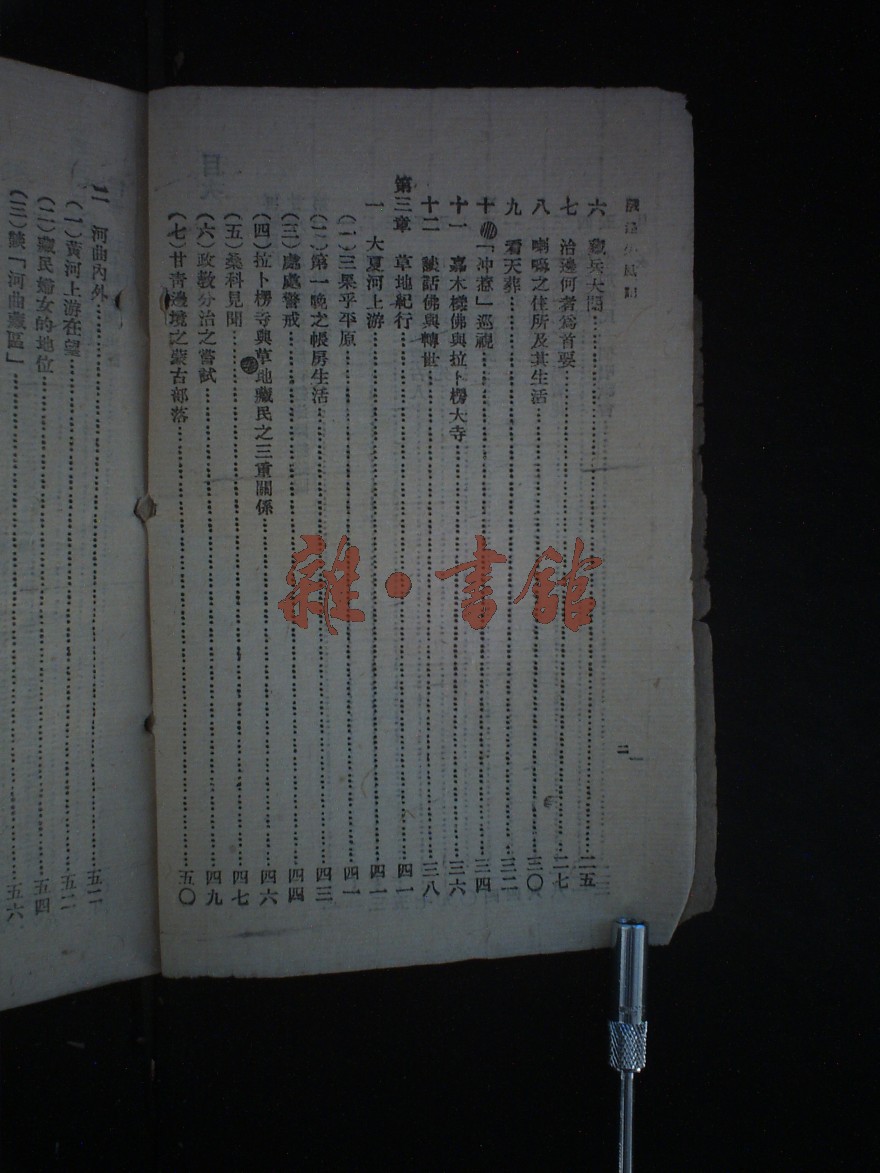 二
六 藏兵大閱 二五
七 治邊何者爲首要 二七
八 喇嘛之住所及其生活 三〇
九 看天葬 三二
十 「冲惹」巡視 三四
十一 嘉木樣佛與拉卜楞大寺 三六
十二 談話佛與轉世 三八
第三章 草地紀行 四一
一 大夏河上游 四一
(一)三果乎平原 四一
(二)第一晚之帳房生活 四三
(三)處處警戒 四四
(四)拉卜楞寺與草地藏民之三重關係 四六
(五)桑科見聞 四七
(六)政教分治之嘗試 四九
(七)甘青邊境之蒙古部落 五〇
二 河曲內外 五二
(一)黃河上游在望 五二
(二)藏民婦女的地位 五四
(三)談「河曲藏區」 五六
雜·書館